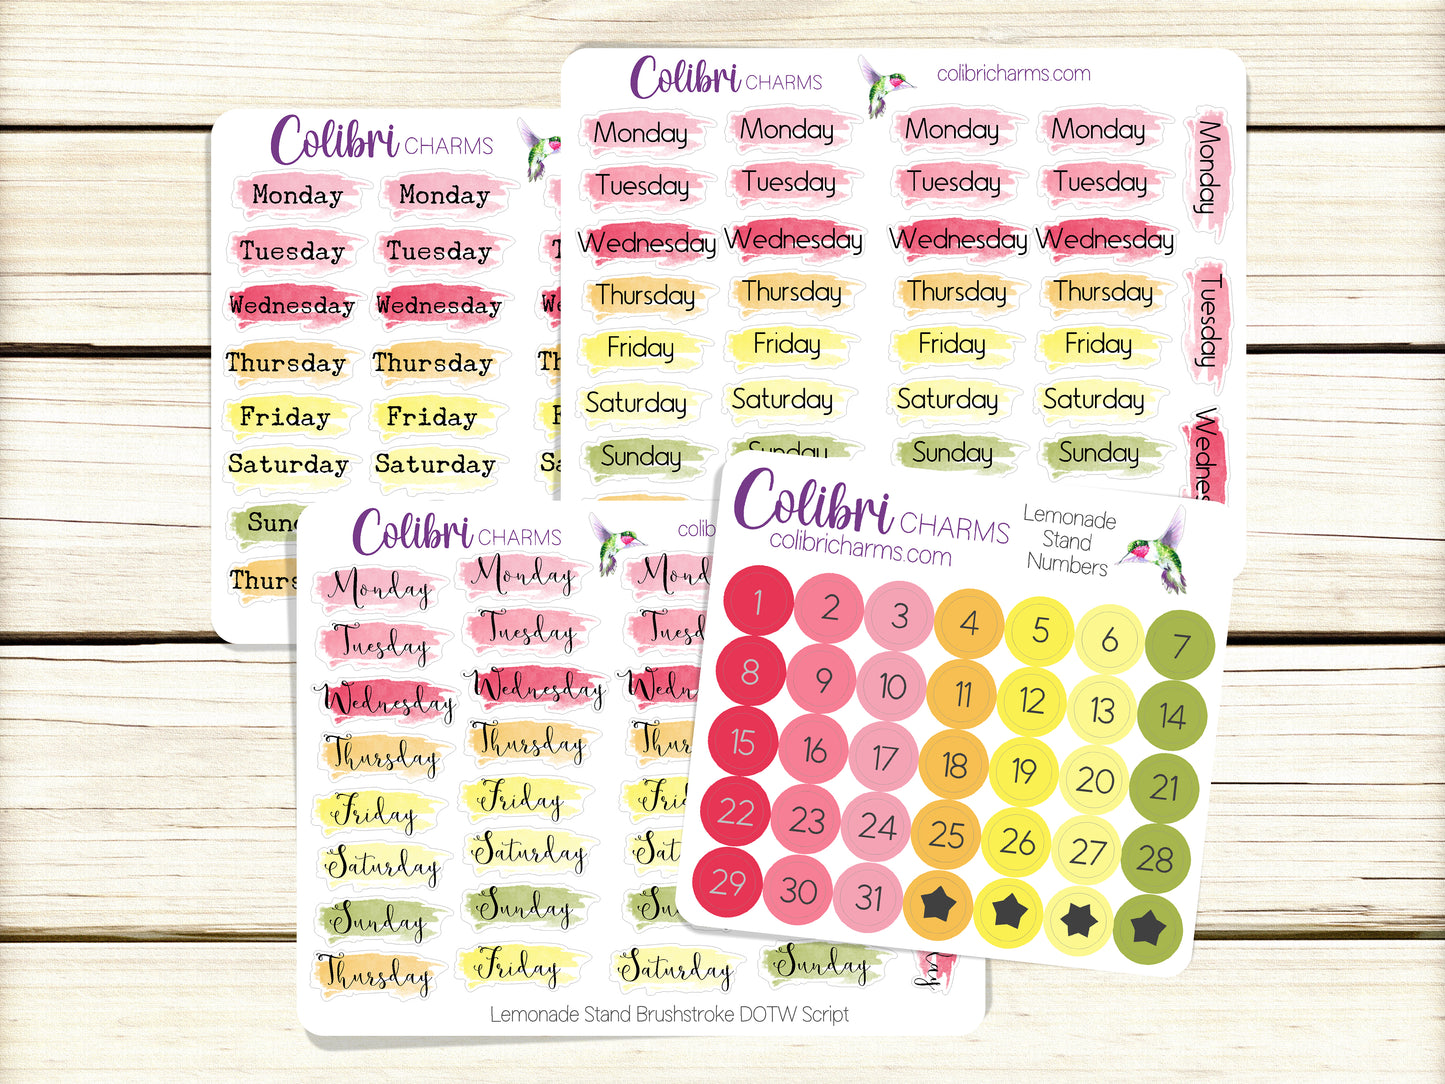 Colibri CHARMS
Monday Monday
Tuesday Tuesday
Wednesday Wednesday
Thursday Thursday
Friday Friday
Saturday Saturday
Colibri CHARMS colibricharms.com
Monday Monday Monday Monday Monday
Tuesday Tuesday Tuesday Tuesday Tuesday
Wednesday Wednesday Wednesday Wednesday
Thursday Thursday Thursday Thursday
Friday Friday Friday Friday
Saturday Saturday Saturday Saturday
Sunday Sunday Sunday Sunday
Colibri CHARMS
Monday Monday
Tuesday Tuesday
Wednesday Wednesday
Thursday Thursday
Friday Friday
Saturday Saturday
Sunday Sunday
Thursday Friday Saturday Sunday
Lemonade Stand Brushstroke DOTW Script
Colibri CHARMS
colibricharms.com
Lemonade
Stand
Numbers
1 2 3 4 5 6 7
8 9 10 11 12 13 14
15 16 17 18 19 20 21
22 23 24 25 26 27 28
29 30 31